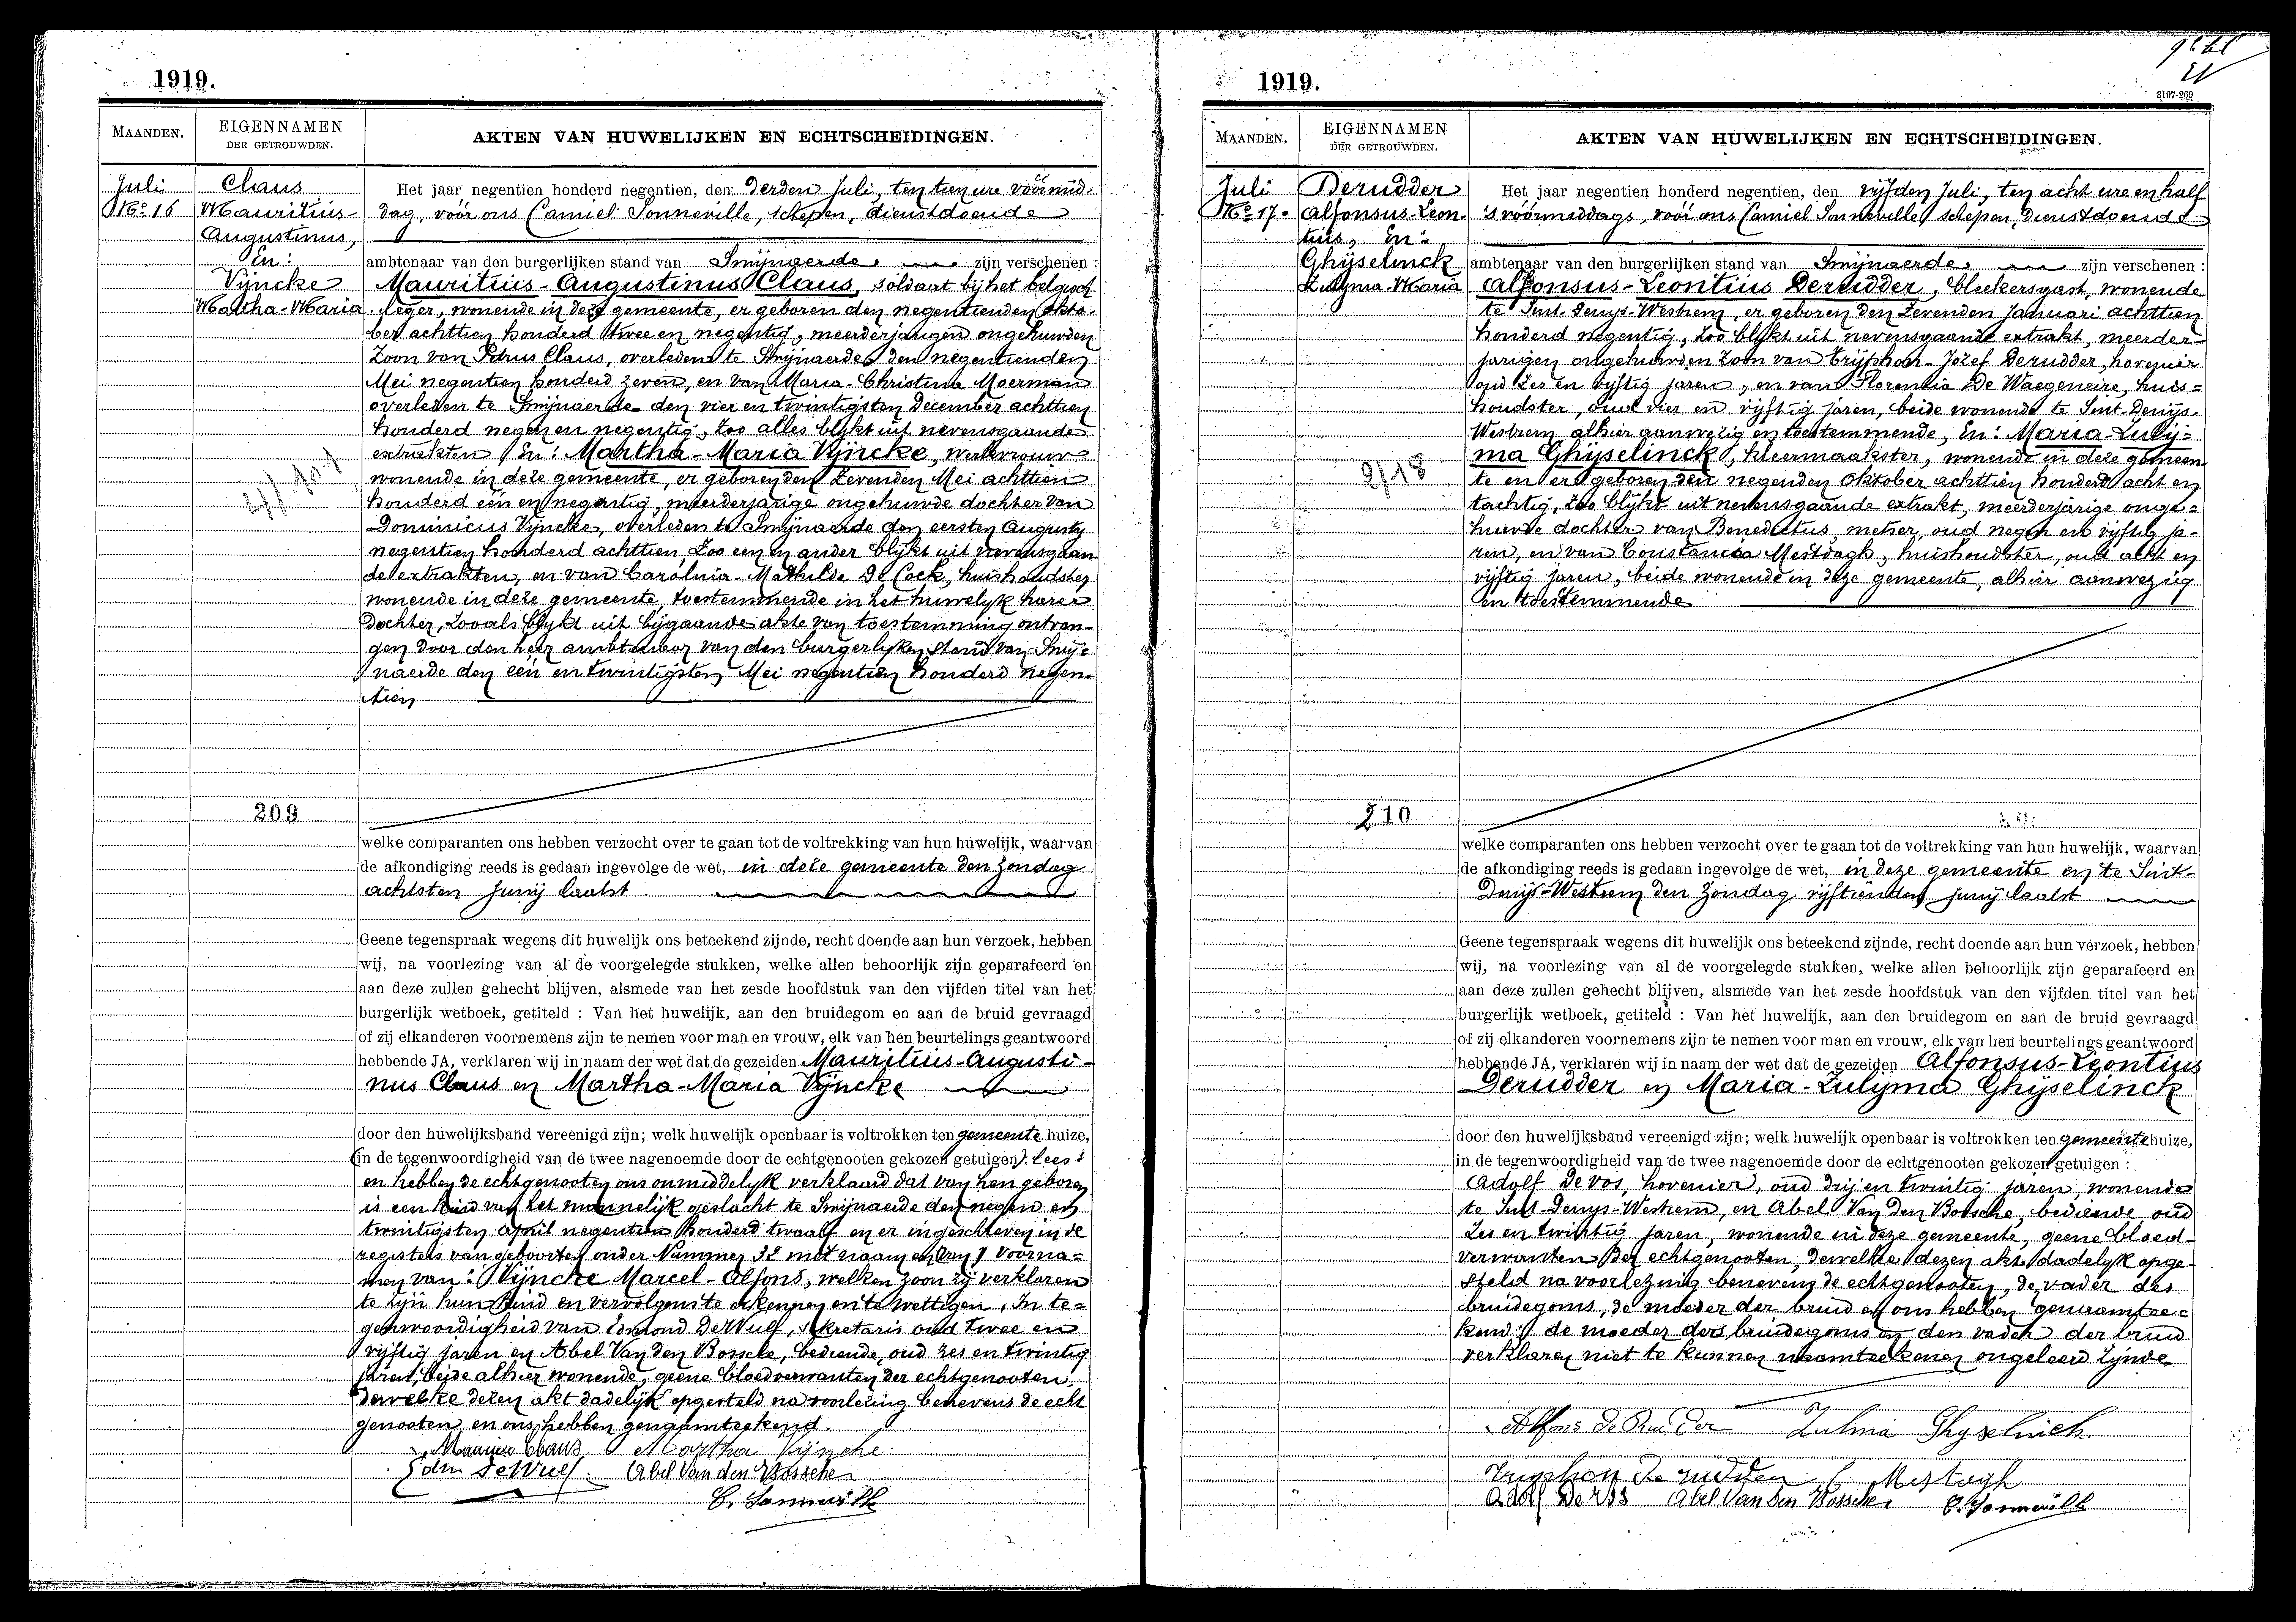 1919.
MAANDEN.
EIGENNAMEN
DER GETROUWDEN.
AKTEN VAN HUWELIJKEN EN ECHTSCHEIDINGEN.
Juli
No 16
Claus
Mauritius-
Augustinus,
En:
Vijncke
Martha-Maria
Het jaar negentien honderd negentien, den derden Juli, ten tien ure voormid-
dag, voor ons Camiel Sonneville, schepen, dienstdoende
ambtenaar van den burgerlijken stand van Smijnaerde zijn verschenen :
Mauritius-Augustinus Claus, soldaat bij het belgisch
leger, wonende in deze gemeente, er geboren den negentienden Okto-
ber achttien honderd twee en negentig, meerderjarigen ongehuwden
Zoon van Petrus Claus, overleden te Smijnaerde den negentienden
Mei negentien honderd zeven, en van Maria-Christina Moerman
overleden te Smijnaerde den vier en twintigsten December achttien
honderd negen en negentig, zoo alles blijkt uit nevensgaande
extrakten En: Martha-Maria Vijncke, werkvrouw
wonende in deze gemeente, er geboren den zevenden Mei achttien
honderd een en negentig, meerderjarige ongehuwde dochter van
Dominicus Vijncke, overleden te Smijnaerde den eersten Augusty
negentien honderd achttien, zoo een en ander blijkt uit nevensgaan
de extrakten, en van Carolnia-Mathilde De Cock, huishoudster
wonende in deze gemeente, toestemmende in het huwelyk harer
Dochter, zooals blykt uit bijgaande akte van toestemming ontvan-
gen door den heer ambtenaar van den burgerlyken stand van Smij-
naerde den een en twintigsten Mei negentien honderd negen-
tien
209
welke comparanten ons hebben verzocht over te gaan tot de voltrekking van hun huwelijk, waarvan
de afkondiging reeds is gedaan ingevolge de wet, in deze gemeente den Zondag
achtsten Junij laatst
Geene tegenspraak wegens dit huwelijk ons beteekend zijnde, recht doende aan hun verzoek, hebben
wij, na voorlezing van al de voorgelegde stukken, welke allen behoorlijk zijn geparafeerd en
aan deze zullen gehecht blijven, alsmede van het zesde hoofdstuk van den vijfden titel van het
burgerlijk wetboek, getiteld : Van het huwelijk, aan den bruidegom en aan de bruid gevraagd
of zij elkanderen voornemens zijn te nemen voor man en vrouw, elk van hen beurtelings geantwoord
hebbende JA, verklaren wij in naam der wet dat de gezeiden Mauritius-Augusti-
nus Claus en Martha-Maria Vijncke
door den huwelijksband vereenigd zijn; welk huwelijk openbaar is voltrokken ten gemeente huize,
(in de tegenwoordigheid van de twee nagenoemde door de echtgenooten gekozen getuigen). Lees:
en hebben de echtgenooten ons onmiddelyk verklaard dat van hen geboren
is een kind van het mannelijk geslacht te Smijnaerde den negen en
twintigsten April negentien honderd twaalf en er ingeschreven in de
registers van geboorten onder Nummer 32 met naam en voorna-
men van: Vijncke Marcel-Alfons, welken zoon zij verklaren
te zijn hun kind en vervolgens te erkennen en te wettigen. In te-
genwoordigheid van Edmond DeWulf, sekretaris oud twee en
vijftig jaren en Abel Van den Bossche, bediende, oud zes en twintig
jaren, beide alhier wonende, geene bloedverwanten der echtgenooten
dewelke dezen akt dadelijk opgesteld na voorlezing benevens de echt
genooten en ons hebben genaamteekend.
Maurice Claus Martha Vijncke
Edm DeWulf Abel Van den Bossche
C. Sonneville
1919.
3107-269
MAANDEN.
EIGENNAMEN
DER GETROUWDEN.
AKTEN VAN HUWELIJKEN EN ECHTSCHEIDINGEN.
Juli
No 17.
Derudder
Alfonsus-Leon-
tius, En:
Ghijselinck
Zulyma-Maria
Het jaar negentien honderd negentien, den vijfden Juli, ten acht ure en half
's voormiddags, voor ons Camiel Sonneville schepen, dienstdoende
ambtenaar van den burgerlijken stand van Smijnaerde zijn verschenen :
Alfonsus-Leontius Derudder, bleekersgast, wonende
te Sint-Denys-Westrem, er geboren den zevenden Januari achttien
honderd negentig, zoo blykt uit nevensgaande extrakt, meerder-
jarigen ongehuwden zoon van Trijphon-Jozef Derudder, hovenier
oud zes en vyftig jaren, en van Florentia De Waegeneire, huis-
houdster, oud vier en vijftig jaren, beide wonende te Sint-Denijs-
Westrem alhier aanwezig en toestemmende, En: Maria-Zuly-
ma Ghijselinck, kleermaakster, wonende in deze gemeen
te en er geboren den negenden Oktober achttien honderd acht en
tachtig, zoo blijkt uit nevensgaande extrakt, meerderjarige onge-
huwde dochter van Benedictus, metser, oud negen en vyftig ja-
ren, en van Constancia Mestdagh, huishoudster, oud acht en
vijftig jaren, beide wonende in deze gemeente, alhier aanwezig
en toestemmende
9/18
210
welke comparanten ons hebben verzocht over te gaan tot de voltrekking van hun huwelijk, waarvan
de afkondiging reeds is gedaan ingevolge de wet, in deze gemeente en te Sint-
Denijs-Westrem den Zondag vijftienden Junij laatst
Geene tegenspraak wegens dit huwelijk ons beteekend zijnde, recht doende aan hun verzoek, hebben
wij, na voorlezing van al de voorgelegde stukken, welke allen behoorlijk zijn geparafeerd en
aan deze zullen gehecht blijven, alsmede van het zesde hoofdstuk van den vijfden titel van het
burgerlijk wetboek, getiteld : Van het huwelijk, aan den bruidegom en aan de bruid gevraagd
of zij elkanderen voornemens zijn te nemen voor man en vrouw, elk van hen beurtelings geantwoord
hebbende JA, verklaren wij in naam der wet dat de gezeiden Alfonsus-Leontius
Derudder en Maria-Zulyma Ghijselinck
door den huwelijksband vereenigd zijn; welk huwelijk openbaar is voltrokken ten gemeente huize,
in de tegenwoordigheid van de twee nagenoemde door de echtgenooten gekozen getuigen :
Adolf De Vos, hovenier, oud drij en twintig jaren, wonende
te Sint-Denys-Westrem, en Abel Van den Bossche, bediende, oud
zes en twintig jaren, wonende in deze gemeente, geene bloed-
verwanten der echtgenooten, dewelke dezen akt dadelyk opge-
steld na voorlezing benevens de echtgenooten, de vader des
bruidegoms, de moeder der bruid en ons hebben genaamtee-
kend; de moeder des bruidegoms en den vader der bruid
verklaren niet te kunnen naamteekenen ongeleerd zijnde
Alfons De Rudder Zulma Ghyselinck
Tryphon De rudder C Mestagh
Adolf De Vos Abel Van den Bossche C. Sonneville